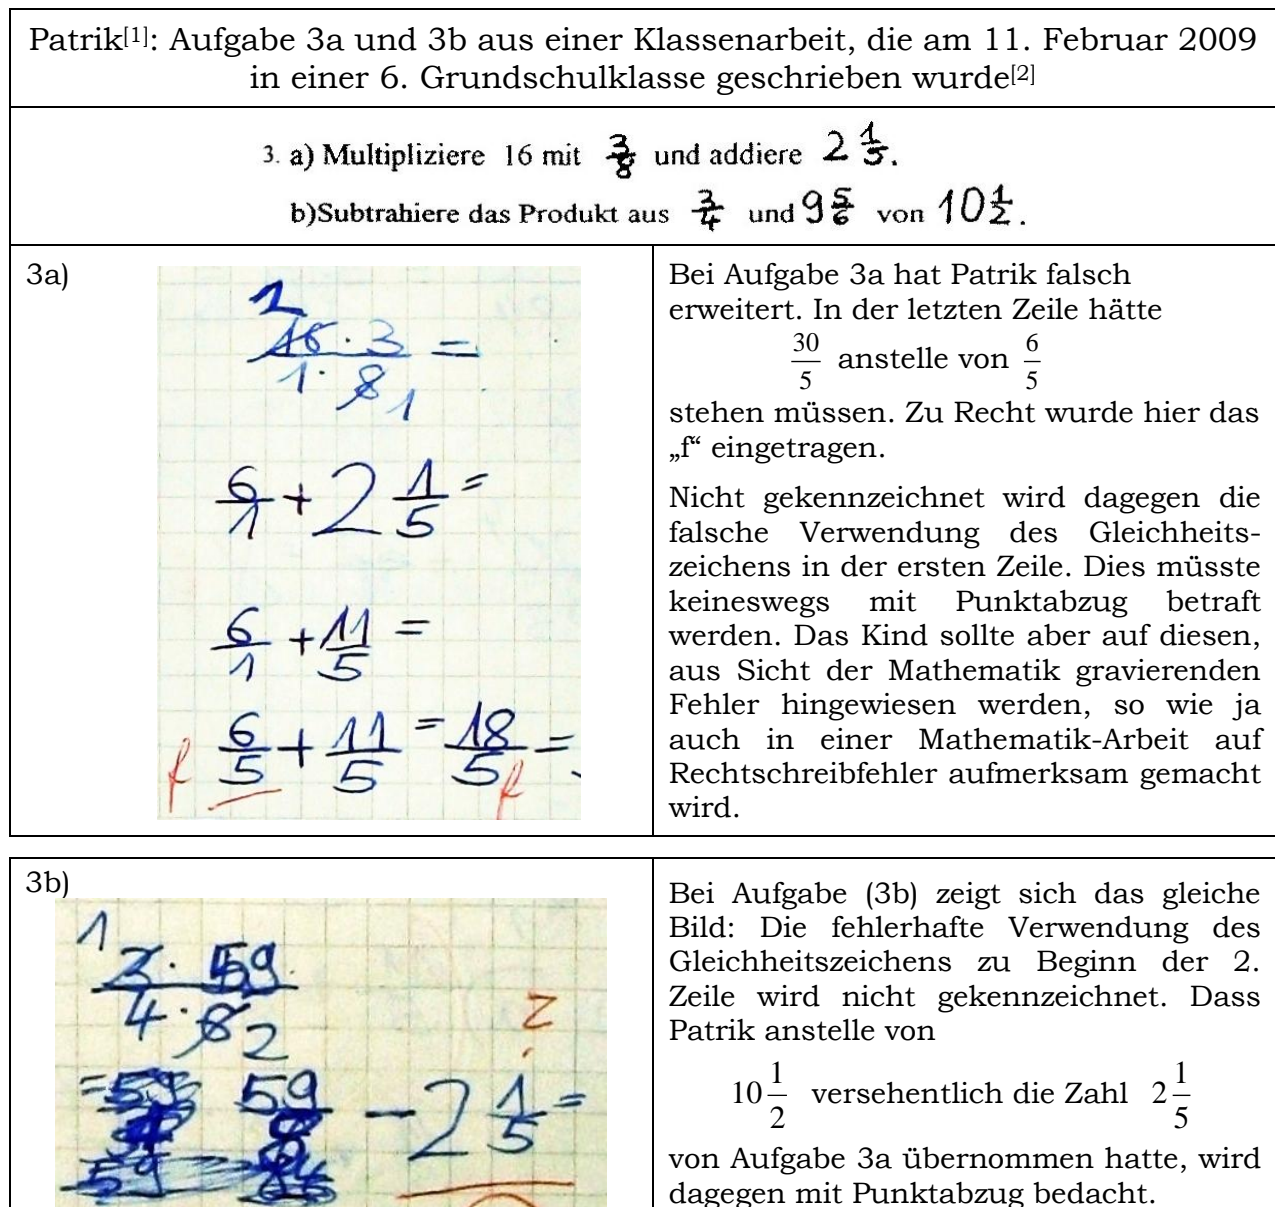 Patrik[1]: Aufgabe 3a und 3b aus einer Klassenarbeit, die am 11. Februar 2009
in einer 6. Grundschulklasse geschrieben wurde[2]
3. a) Multipliziere 16 mit 3/8 und addiere 2 1/5.
b)Subtrahiere das Produkt aus 3/4 und 9 5/6 von 10 1/2.
3a)
2
16 · 3 =
1 · 8 1
6/1 + 2 1/5 =
6/1 + 11/5 =
f 6/5 + 11/5 = 18/5 =
f
Bei Aufgabe 3a hat Patrik falsch
erweitert. In der letzten Zeile hätte
30/5 anstelle von 6/5
stehen müssen. Zu Recht wurde hier das
„f“ eingetragen.
Nicht gekennzeichnet wird dagegen die
falsche Verwendung des Gleichheits-
zeichens in der ersten Zeile. Dies müsste
keineswegs mit Punktabzug betraft
werden. Das Kind sollte aber auf diesen,
aus Sicht der Mathematik gravierenden
Fehler hingewiesen werden, so wie ja
auch in einer Mathematik-Arbeit auf
Rechtschreibfehler aufmerksam gemacht
wird.
3b)
1
3 · 59
4 · 8 2
59 - 2 1/5 =
Bei Aufgabe (3b) zeigt sich das gleiche
Bild: Die fehlerhafte Verwendung des
Gleichheitszeichens zu Beginn der 2.
Zeile wird nicht gekennzeichnet. Dass
Patrik anstelle von
10 1/2 versehentlich die Zahl 2 1/5
von Aufgabe 3a übernommen hatte, wird
dagegen mit Punktabzug bedacht.